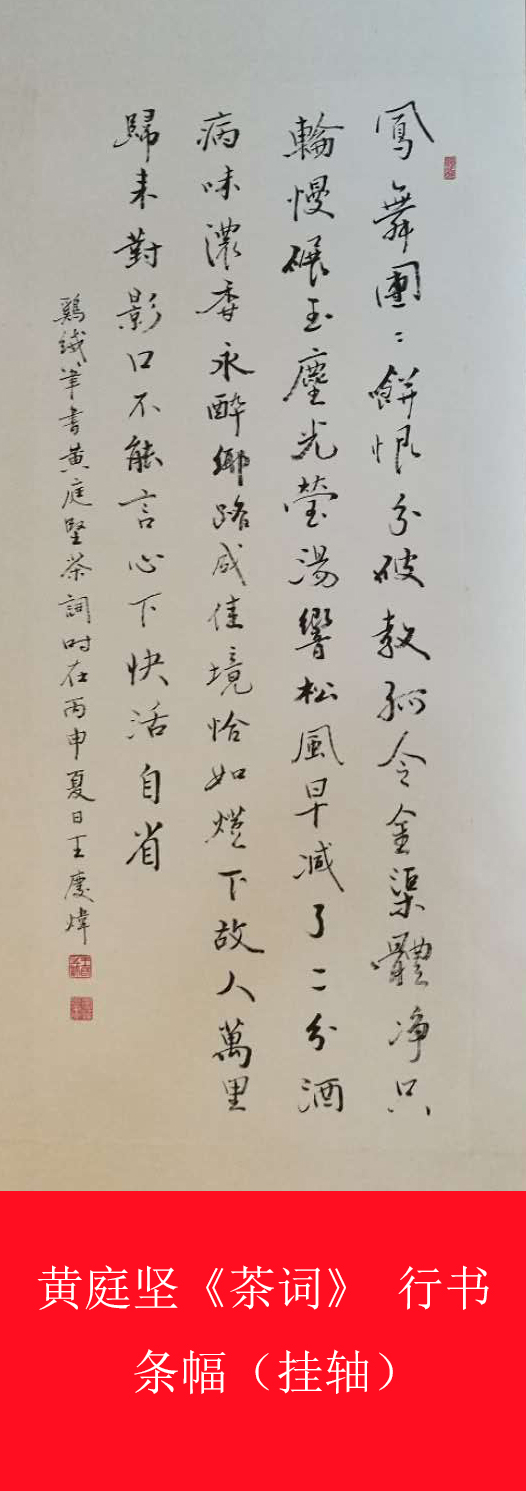 鳳舞團〻餅恨分破教孤令金渠體净只
輪慢碾玉塵光瑩湯響松風早减了二分酒
病味濃香永醉鄉路成佳境恰如燈下故人萬里
歸来對影口不能言心下快活自省
鷄絨筆書黄庭堅茶詞时在丙申夏日王慶煒
黄庭坚《茶词》 行书
条幅（挂轴）